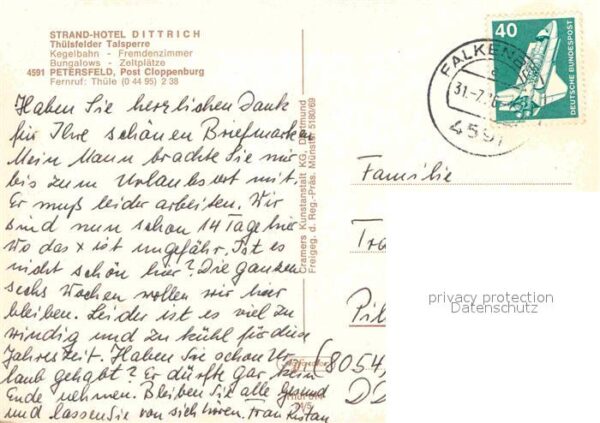 STRAND-HOTEL DITTRICH
Thülsfelder Talsperre
Kegelbahn - Fremdenzimmer
Bungalows - Zeltplätze
4591 PETERSFELD, Post Cloppenburg
Fernruf: Thüle (0 44 95) 2 38
Haben Sie herzlichen Dank
für Ihre schönen Briefmarken
Mein Mann brachte Sie mir
bis zum Urlaubsort mit.
Er muß leider arbeiten. Wir
sind nun schon 14 Tage hier
wo das x ist ungefähr. Ist es
nicht schön hier? Die ganzen
sechs Wochen wollen wir hier
bleiben. Leider ist es viel zu
windig und zu kühl für diese
Jahreszeit. Haben Sie schon Ur-
laub gehabt? Er dürfte gar kein
Ende nehmen. Bleiben Sie alle gesund
und lassen Sie von sich hören. Frau
Cramers Kunstanstalt KG, Dortmund
Freigeg. d. Reg.-Präs. Münster 5180/69
40
DEUTSCHE BUNDESPOST
31.-7.
4591
Familie
(8054)
DD
privacy protection
Datenschutz